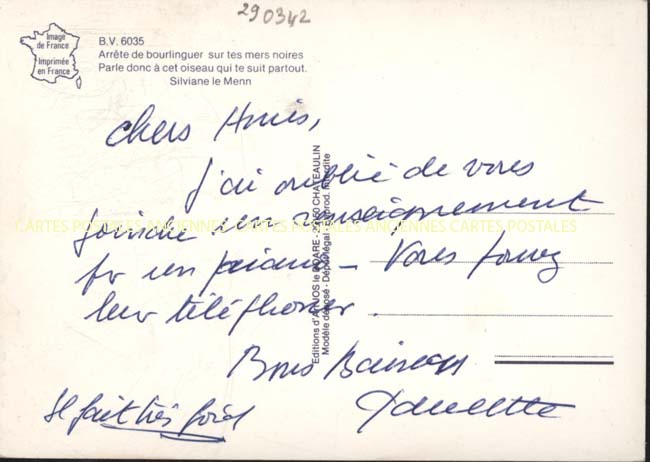 290342
Image
de France
Imprimée
en France
B.V. 6035
Arrête de bourlinguer sur tes mers noires
Parle donc à cet oiseau qui te suit partout.
Silviane le Menn
chers Amis,
j'ai oublié de vous
joindre un renseignement
un piano - Vous pouvez
leur téléphoner.
Bons Baisers
Il fait très froid
Paulette
Editions d'Art JOS le DOARE - 29150 CHATEAULIN
Modèle déposé - Dépôt légal - Reprod. interdite
CARTES POSTALES ANCIENNES CARTES POSTALES ANCIENNES CARTES POSTALES